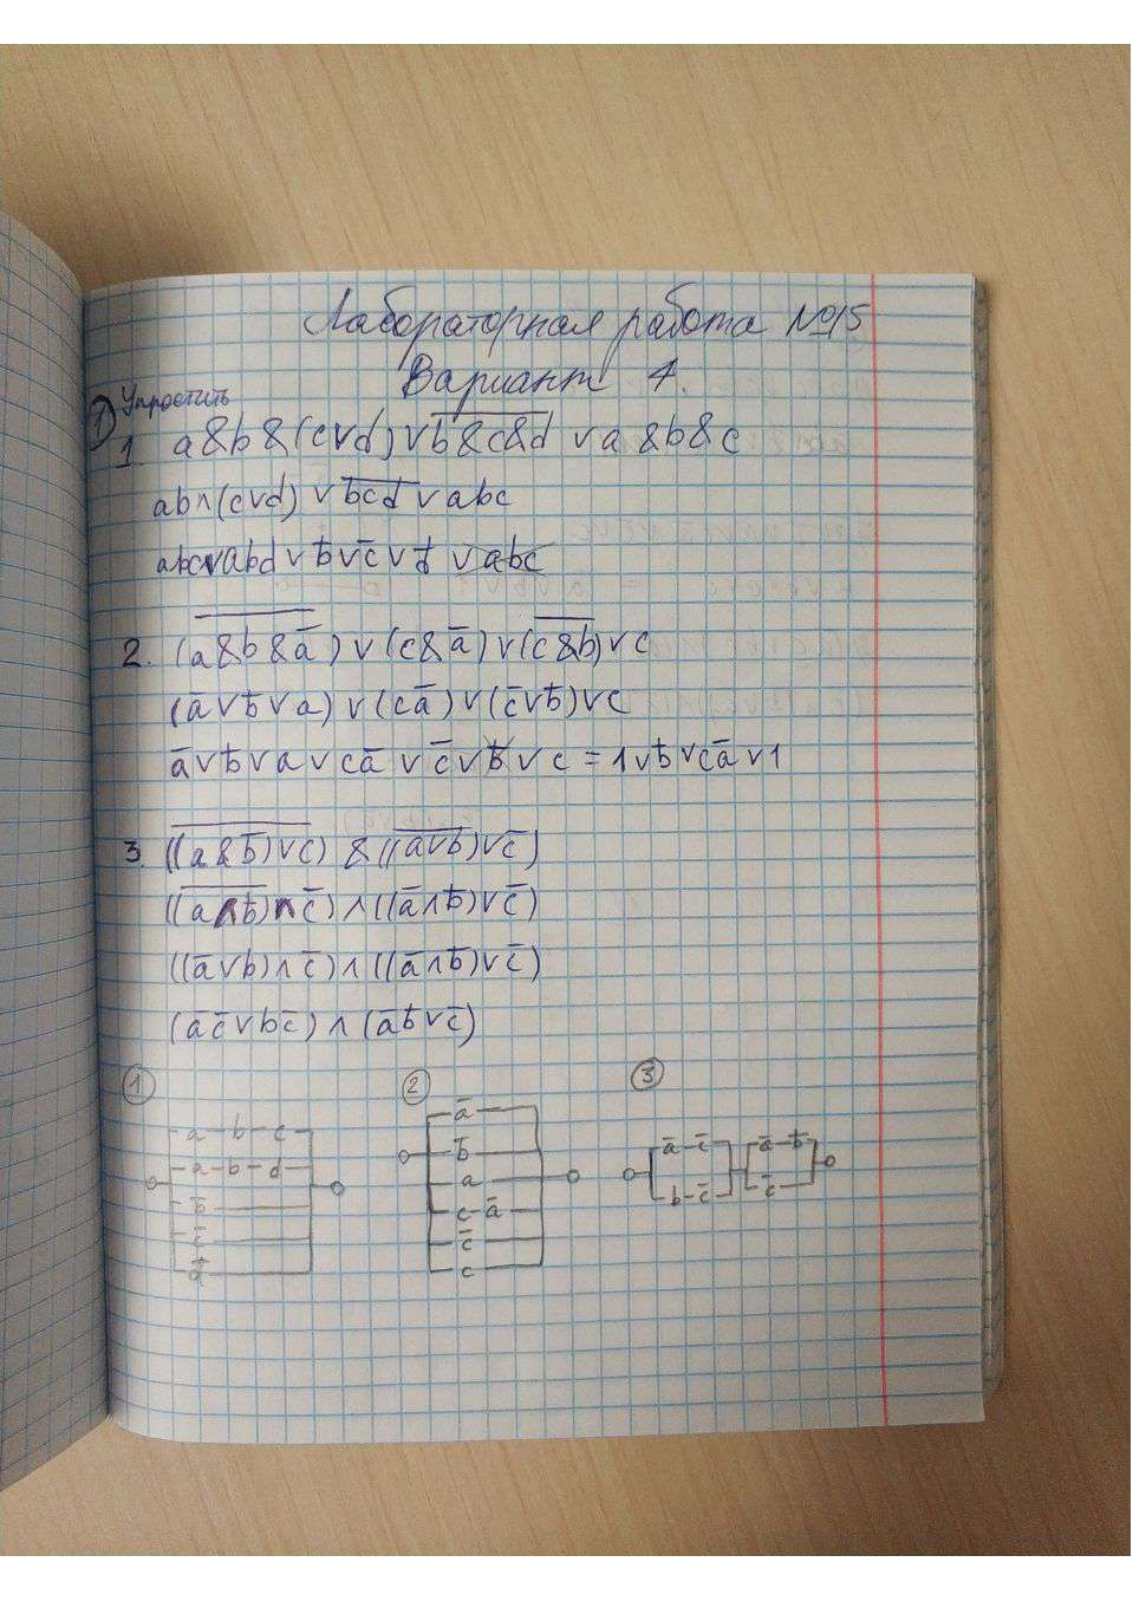 Лабораторная работа №15
Вариант 4.
① Упростить
1. a&b&(c∨d)∨b̅&̅c̅&̅d̅ ∨a&b&c
ab∧(c∨d) ∨b̅c̅d̅∨abc
abc∨abd∨b̅∨c̅∨d̅ ∨abc
2. (a̅&̅b̅&̅a̅̅)∨(c&a̅)∨(c̅&̅b̅)∨c
(a̅∨b̅∨a)∨(ca̅)∨(c̅∨b̅)∨c
a̅∨b̅∨a∨ca̅∨c̅∨b̅∨c=1∨b̅∨ca̅∨1
3. ((̅a̅&̅b̅̅)̅∨̅c̅) &((a̅∨̅b̅)∨c̅)
((a̅∧̅b̅̅)∧c̅)∧((a̅∧b̅)∨c̅)
((a̅∨b)∧c̅)∧((a̅∧b̅)∨c̅)
(a̅c̅∨bc̅)∧(a̅b̅∨c̅)
① ② ③
a b c
a-b-d
b̅
c̅
d̅
a̅
b̅
a
c-a̅
c̅
c
a̅-c̅ a̅-b̅
b-c̅ c̅